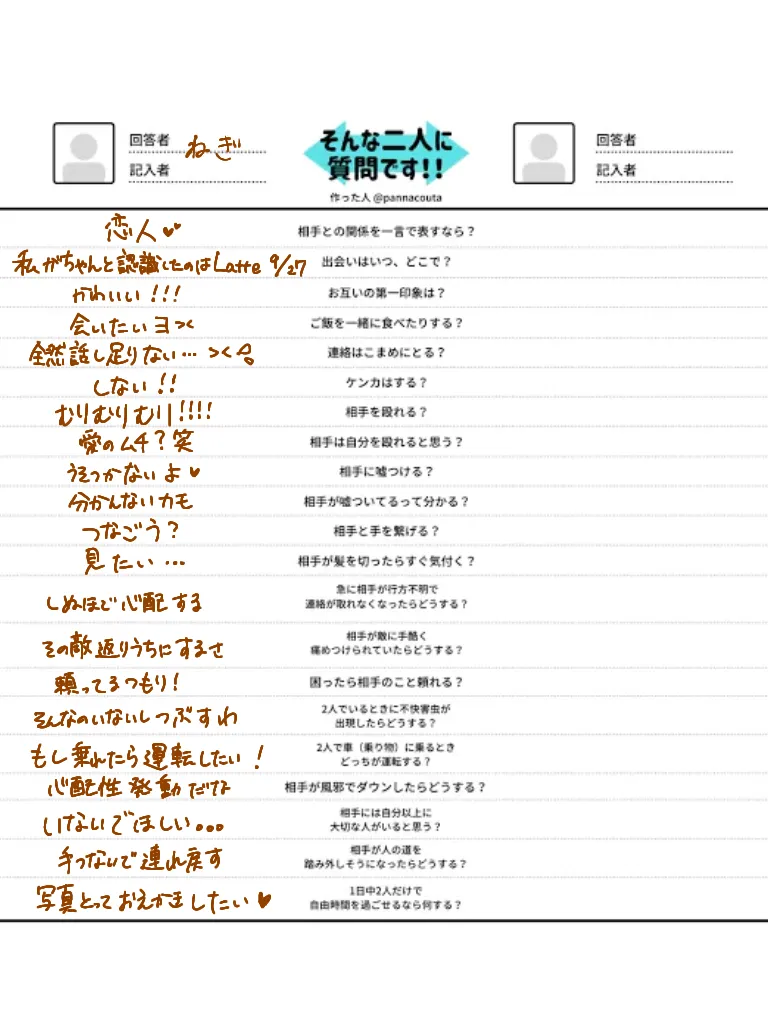 回答者 ねぎ
記入者
そんな二人に
質問です!!
作った人 @pannacouta
回答者
記入者
恋人♥♥ 相手との関係を一言で表すなら？
私がちゃんと認識したのはLatte 9/27 出会いはいつ、どこで？
かわいい!!! お互いの第一印象は？
会いたいヨ＞＜ ご飯を一緒に食べたりする？
全然話し足りない…＞＜ 連絡はこまめにとる？
しない!! ケンカはする？
むりむりむり!!!! 相手を殴れる？
愛のムチ？笑 相手は自分を殴れると思う？
うそつかないよ♥ 相手に嘘つける？
分かんないカモ 相手が嘘ついてるって分かる？
つなごう？ 相手と手を繋げる？
見たい… 相手が髪を切ったらすぐ気付く？
急に相手が行方不明で
しぬほど心配する 連絡が取れなくなったらどうする？
相手が敵に手酷く
その敵返りうちにするさ 痛めつけられていたらどうする？
頼ってるつもり! 困ったら相手のこと頼れる？
2人でいるときに不快害虫が
そんなのいないしつぶすわ 出現したらどうする？
2人で車（乗り物）に乗るとき
もし乗れたら運転したい! どっちが運転する？
心配性発動だな 相手が風邪でダウンしたらどうする？
相手には自分以上に
いないでほしい... 大切な人がいると思う？
相手が人の道を
手つないで連れ戻す 踏み外しそうになったらどうする？
1日中2人だけで
写真とっておえかきしたい♥ 自由時間を過ごせるなら何する？